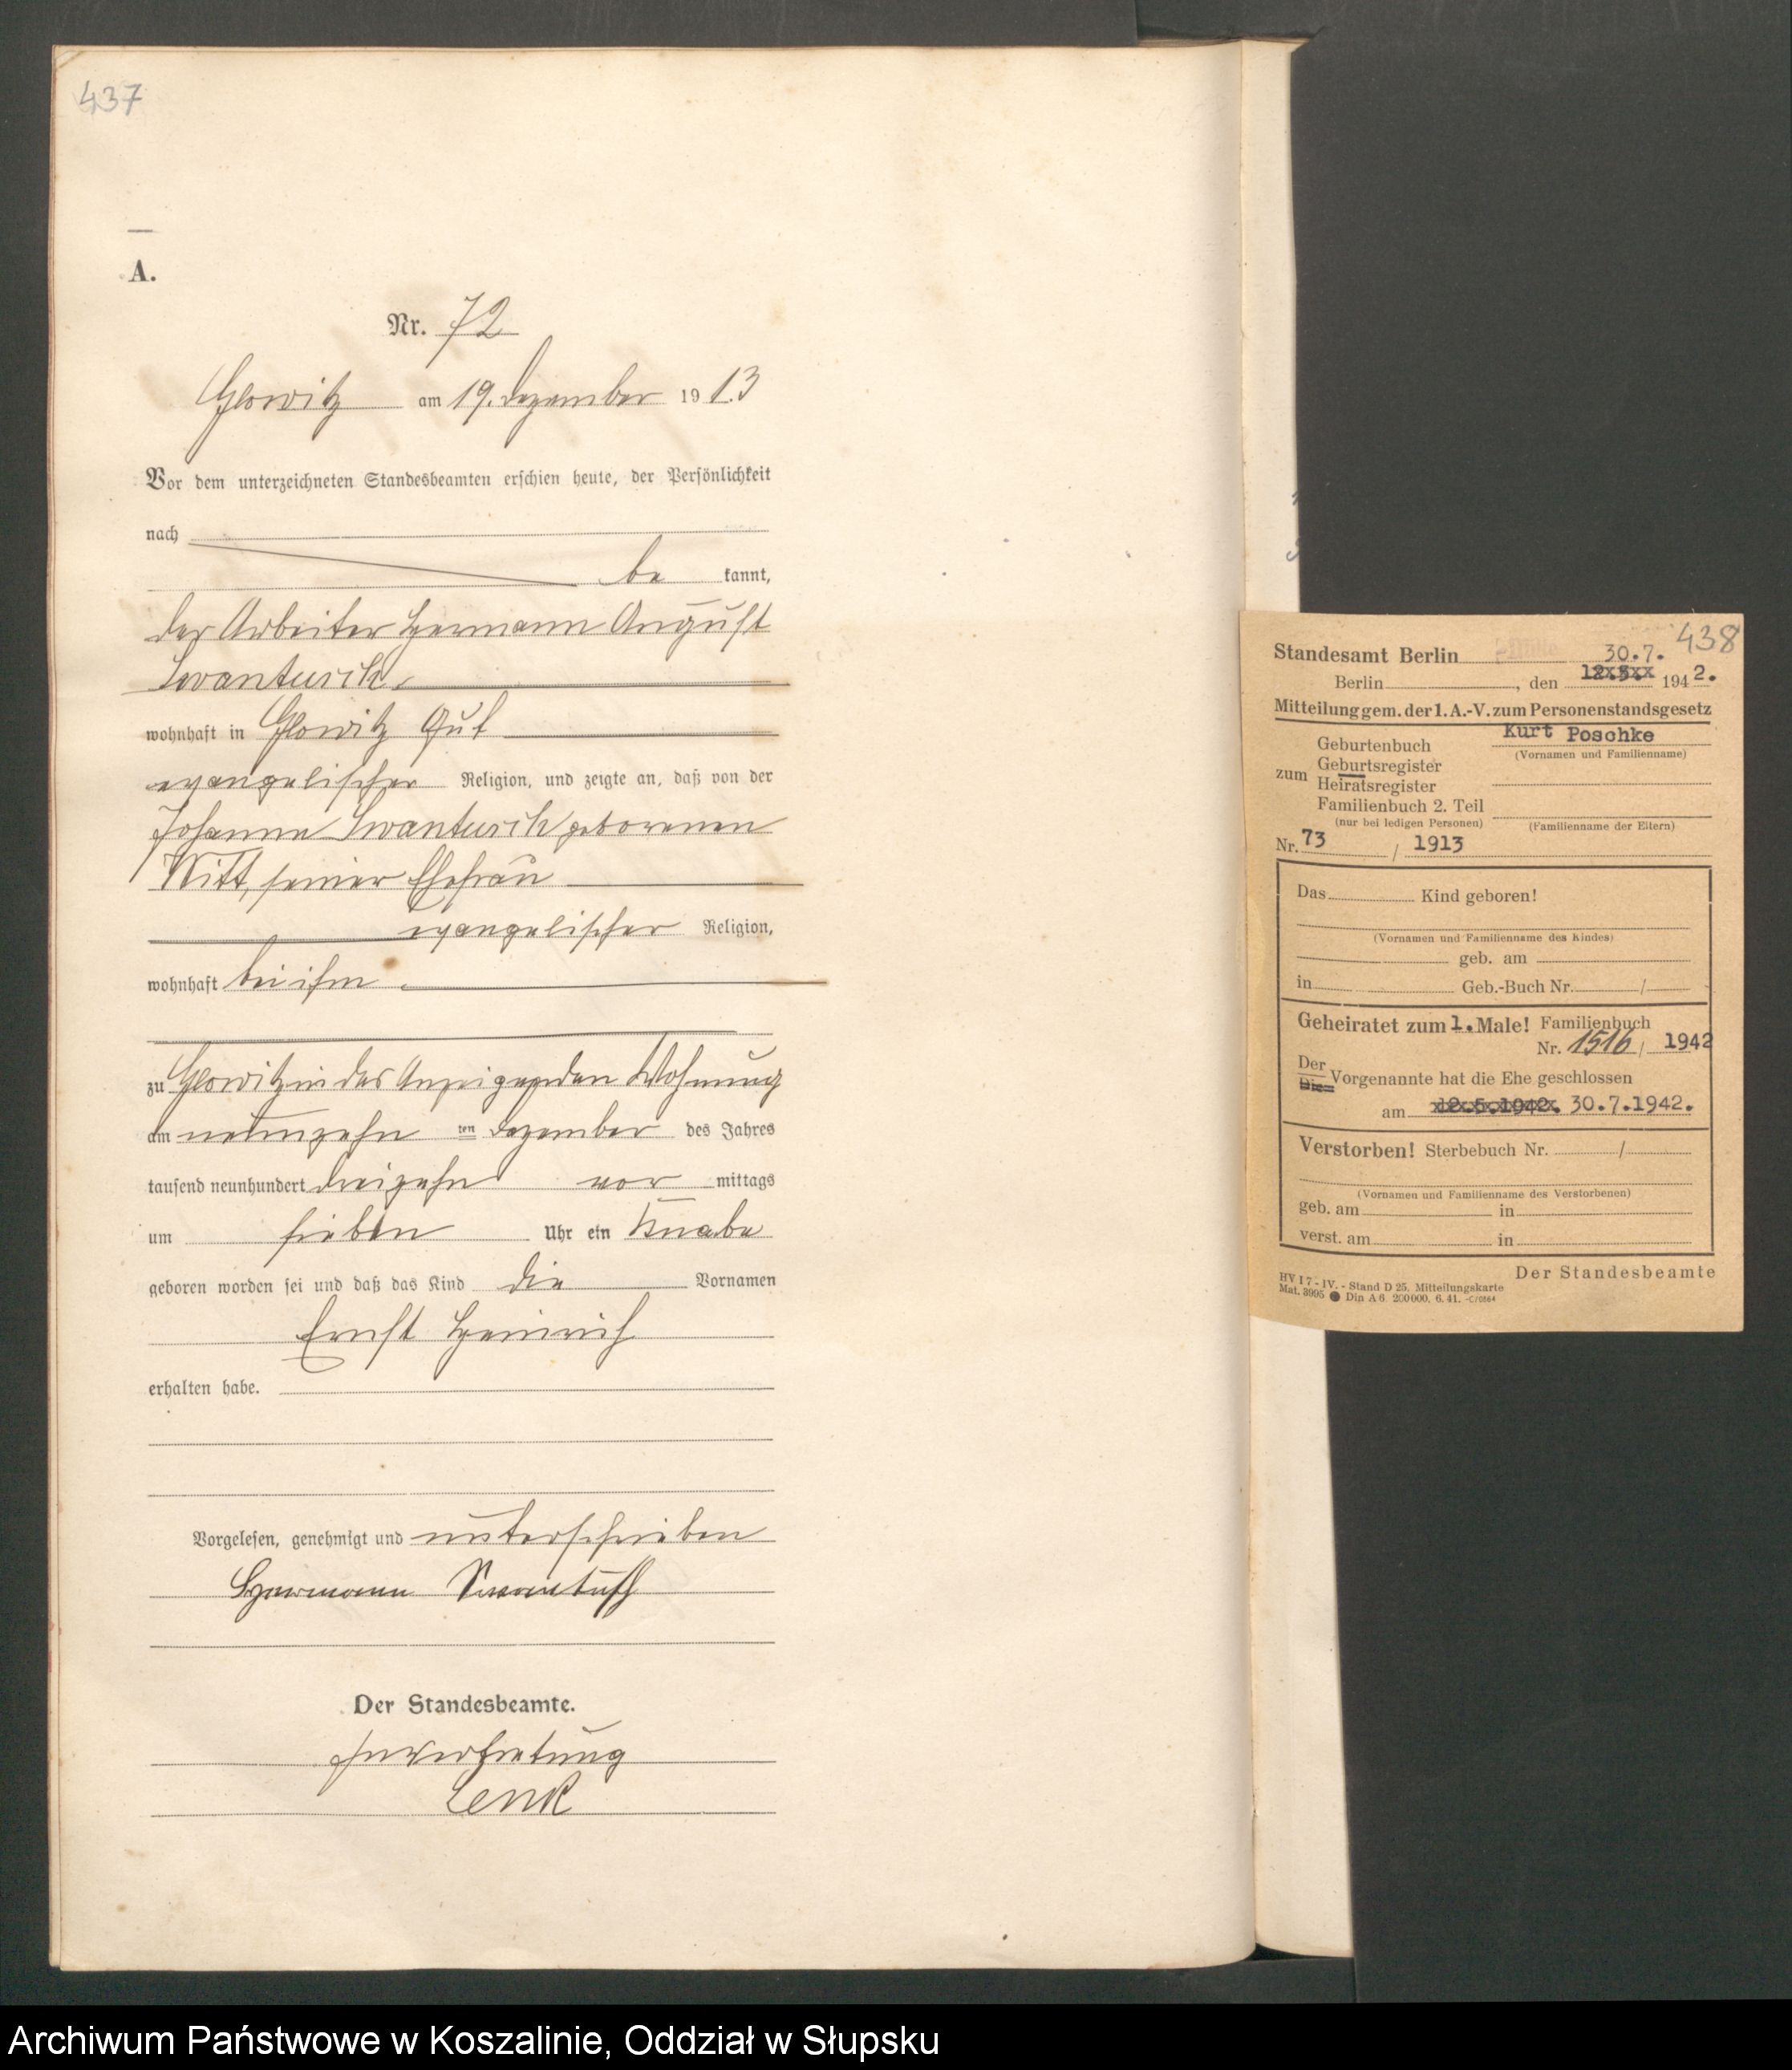 437
A.
Nr. 72
Glowitz am 19. Dezember 1913
Vor dem unterzeichneten Standesbeamten erschien heute, der Persönlichkeit
nach
be kannt,
der Arbeiter Hermann August
Swantusch,
wohnhaft in Glowitz Gut
evangelischer Religion, und zeigte an, daß von der
Johanne Swantusch geborenen
Witt, seiner Ehefrau
evangelischer Religion,
wohnhaft bei ihm
zu Glowitz in des Anzeigenden Wohnung
am neunzehn ten Dezember des Jahres
tausend neunhundert dreizehn vor mittags
um sieben Uhr ein Knabe
geboren worden sei und daß das Kind die Vornamen
Ernst Heinrich
erhalten habe.
Vorgelesen, genehmigt und unterschrieben
Hermann Swantusch
Der Standesbeamte.
In Vertretung
Lenk
438
Standesamt Berlin 30.7.
Berlin, den 12.5.xx 1942.
Mitteilung gem. der 1. A.-V. zum Personenstandsgesetz
Kurt Poschke
Geburtenbuch (Vornamen und Familienname)
Geburtsregister
zum Heiratsregister
Familienbuch 2. Teil
(nur bei ledigen Personen) (Familienname der Eltern)
Nr. 73 / 1913
Das Kind geboren!
(Vornamen und Familienname des Kindes)
geb. am
in Geb.-Buch Nr. /
Geheiratet zum 1. Male! Familienbuch
Nr. 1516 / 1942
Der
Die Vorgenannte hat die Ehe geschlossen
am 12.5.1942. 30.7.1942.
Verstorben! Sterbebuch Nr. /
(Vornamen und Familienname des Verstorbenen)
geb. am in
verst. am in
Der Standesbeamte
HV I 7 - IV. - Stand D 25. Mitteilungskarte
Mat. 3995 ● Din A 6 200000. 6. 41. -C/0864
Archiwum Państwowe w Koszalinie, Oddział w Słupsku